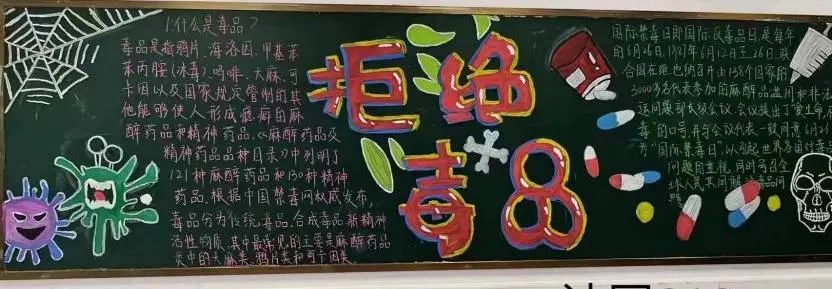 1.什么是毒品?
毒品是指鸦片、海洛因、甲基苯
苯丙胺(冰毒)、吗啡、大麻、可
卡因以及国家规定管制的其
他能够使人形成瘾癖的麻
醉药品和精神药品.《麻醉药品及
精神药品品种目录》中列明了
121种麻醉药品和130种精神
药品.根据中国禁毒网权威发布,
毒品分为传统毒品、合成毒品、新精神
活性物质.其中最常见的主要是麻醉药品
类中的大麻类、鸦片类和可卡因类
拒绝
毒品
国际禁毒日即国际反毒品日,是每年
的6月26日.1987年6月12日至26日,联
合国在维也纳召开由138个国家的
3000多名代表参加的麻醉品滥用和非法
运问题部长级会议.会议提出了"爱生命,
毒"的口号,并与会代表一致同意6月2
为"国际禁毒日",以引起世界各国对毒品
问题的重视,同时号召全
球人民共同